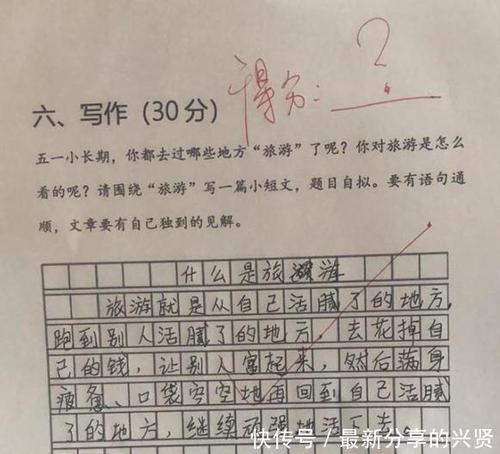 得分:?
六、写作(30分)
五一小长期,你都去过哪些地方“旅游”了呢?你对旅游是怎么
看的呢?请围绕“旅游”写一篇小短文,题目自拟。要有语句通
顺,文章要有自己独到的见解。
什么是旅游
旅游就是从自己活腻了的地方,
跑到别人活腻了的地方,去花掉自
己的钱,让别人富起来,然后满身
疲惫、口袋空空地再回到自己活腻
了的地方,继续顽强地活下去。
快传号/最新分享的兴贤